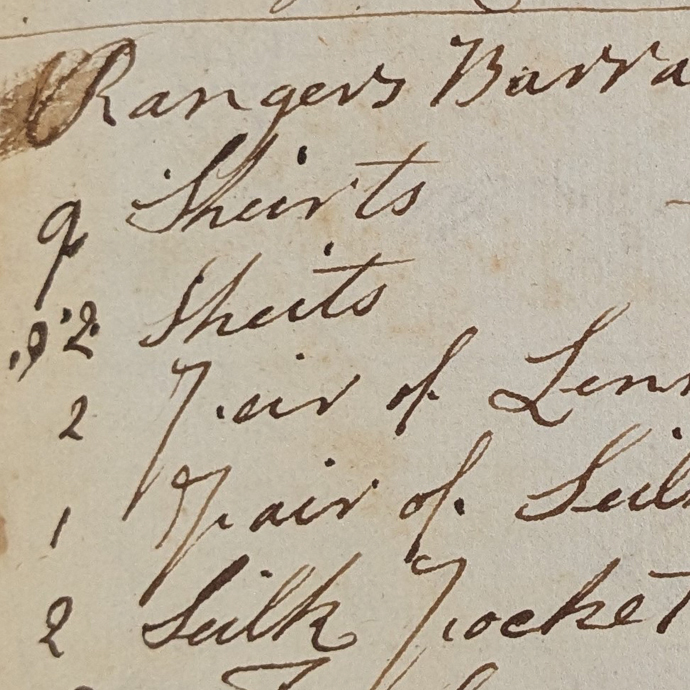 Rangers Barra
9 Sheirts
2 Sheits
2 Peir of Lenn
1 Pair of Seilk
2 Seilk Pocket